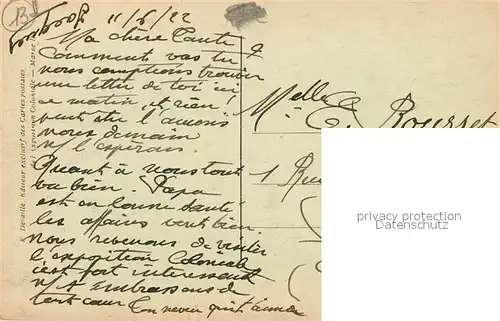 11/6/22
Ma chère Tante
Comment vas tu ?
nous comptions trouver
une lettre de toi ici
ce matin, et rien !
peut être l'aurons
nous demain
n/ l'espérons.
Quant à nous tout
va bien. Papa
est en bonne santé
les affaires vont bien.
Nous revenons de visiter
l'exposition Coloniale
c'est fort intéressant
n/ t'embrassons de
tout cœur Ton neveu qui t'aime
E. Détaille, Editeur exclusif des Cartes postales
de l'Exposition Coloniale — Marseille
Melle E. Rousset
1 Rue
privacy protection
Datenschutz